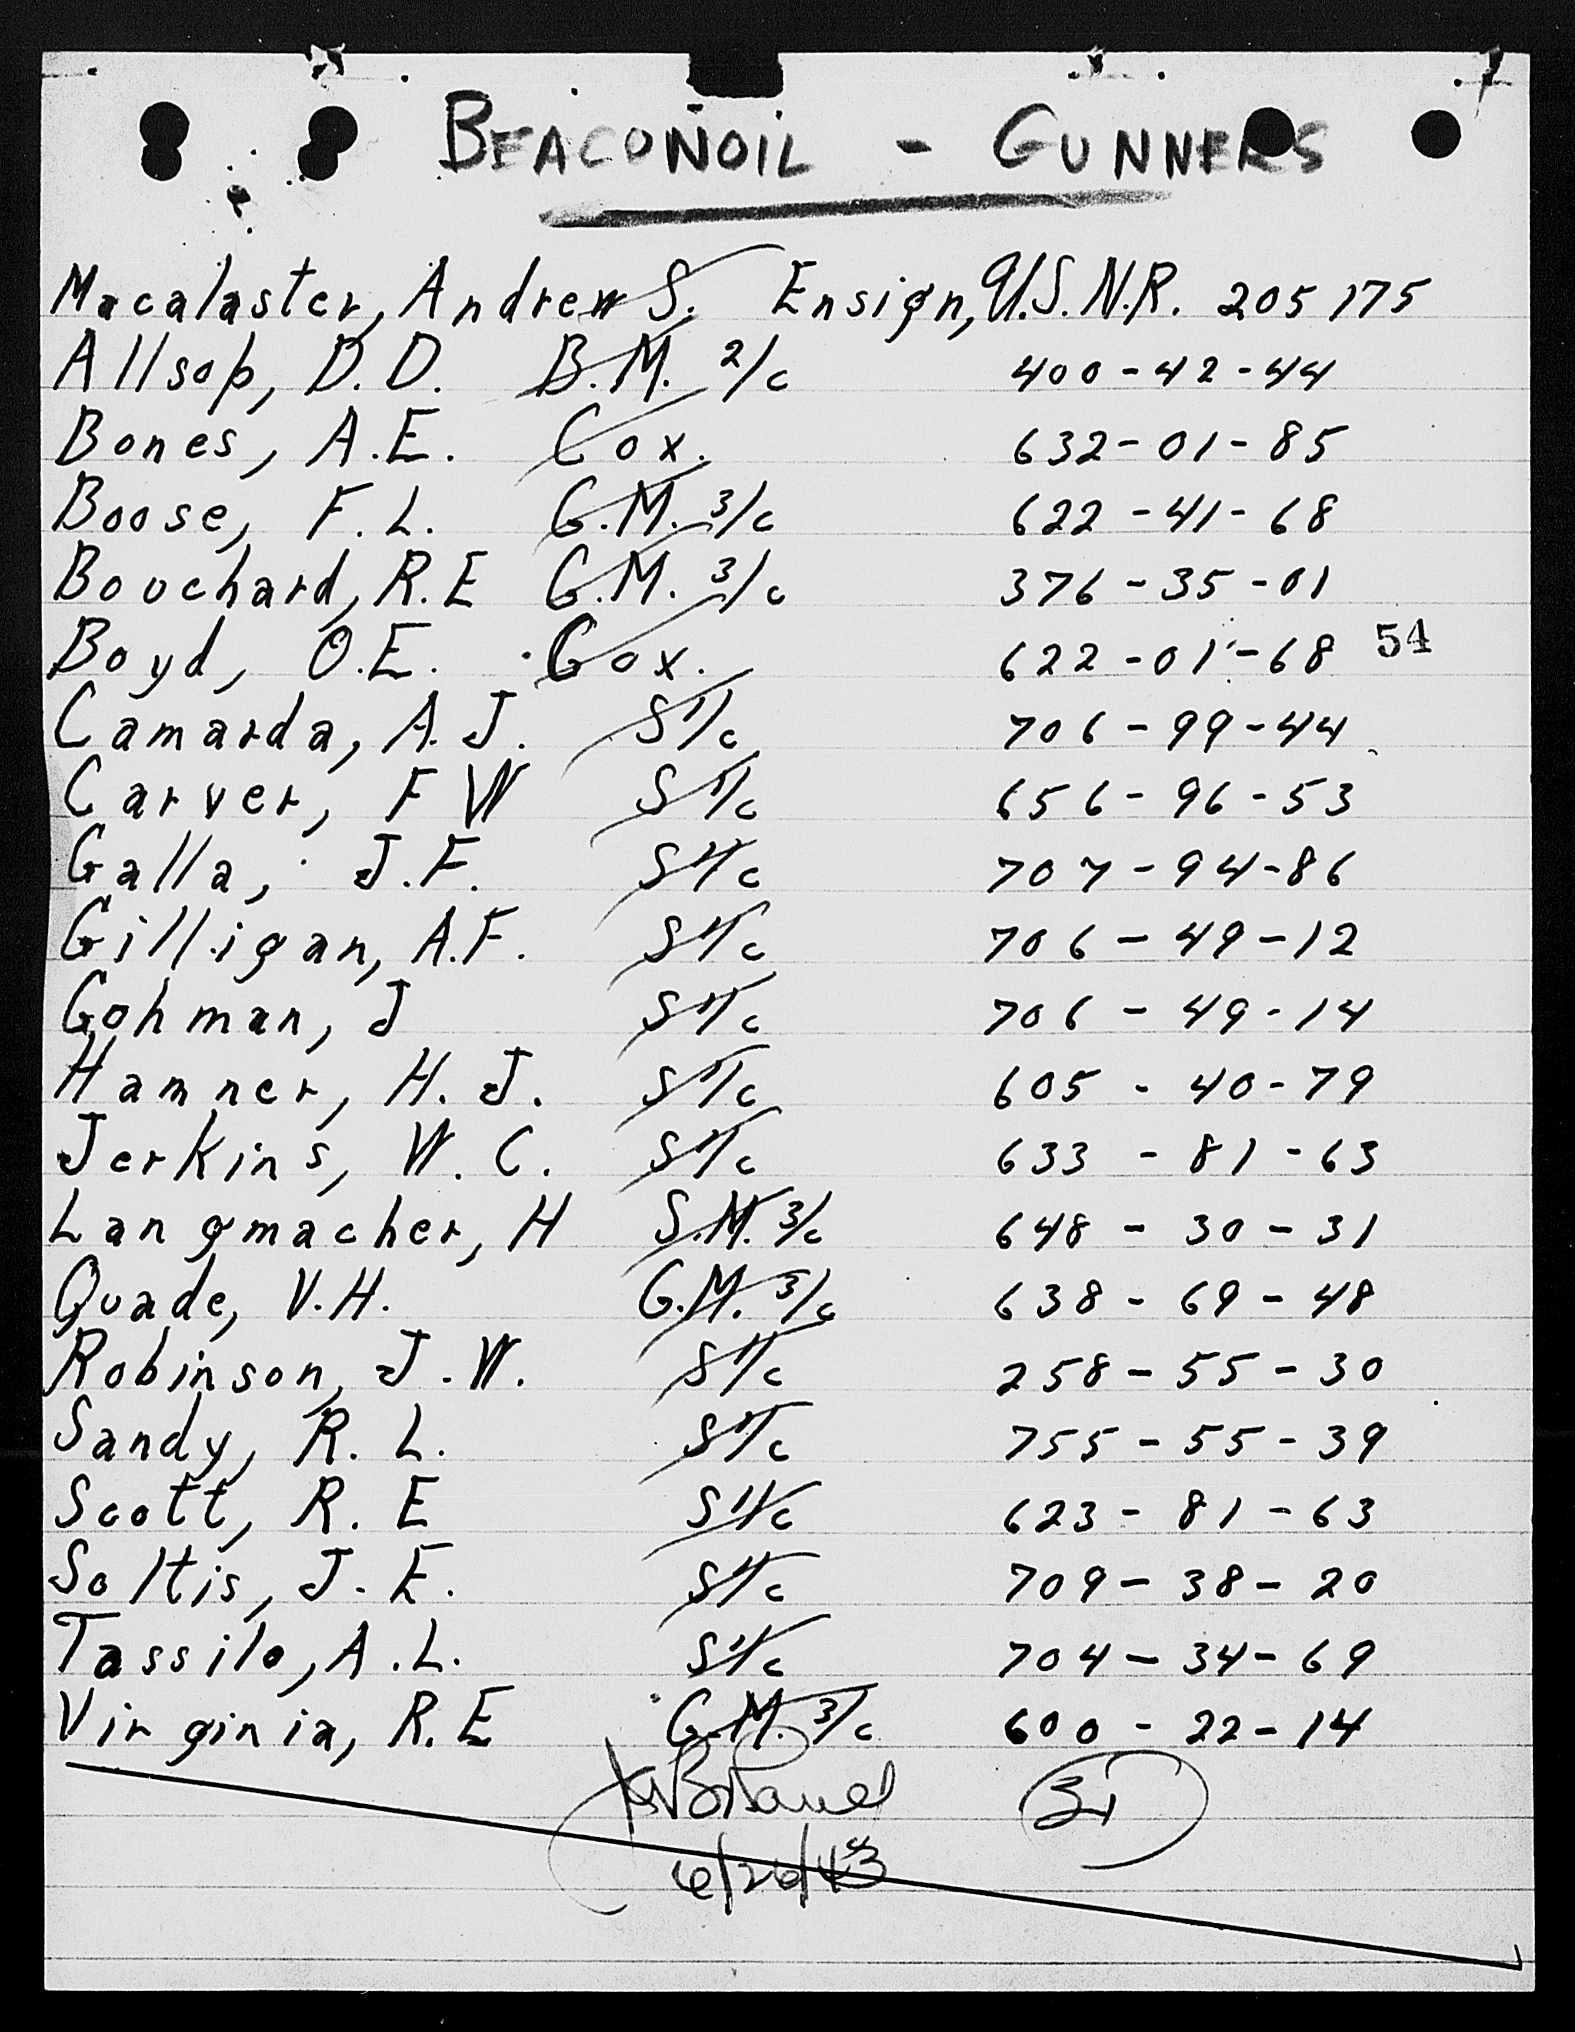 BEACONOIL - GUNNERS
Macalaster, Andrew S. Ensign, U.S.N.R. 205175
Allsop, D.D. B.M. 2/c 400-42-44
Bones, A.E. Cox. 632-01-85
Boose, F.L. G.M. 3/c 622-41-68
Bouchard, R.E G.M. 3/c 376-35-01
Boyd, O.E. Cox. 622-01-68 54
Camarda, A.J. S 1/c 706-99-44
Carver, F W S 1/c 656-96-53
Galla, J.F. S 1/c 707-94-86
Gilligan, A.F. S 1/c 706-49-12
Gohman, J S 1/c 706-49-14
Hamner, H.J. S 1/c 605-40-79
Jerkins, W.C. S 1/c 633-81-63
Langmacher, H S.M. 3/c 648-30-31
Quade, V.H. G.M. 3/c 638-69-48
Robinson, J.W. S 1/c 258-55-30
Sandy, R.L. S 1/c 755-55-39
Scott, R.E S 1/c 623-81-63
Soltis, J.E. S 1/c 709-38-20
Tassilo, A.L. S 1/c 704-34-69
Virginia, R.E G.M. 3/c 600-22-14
6/26/43